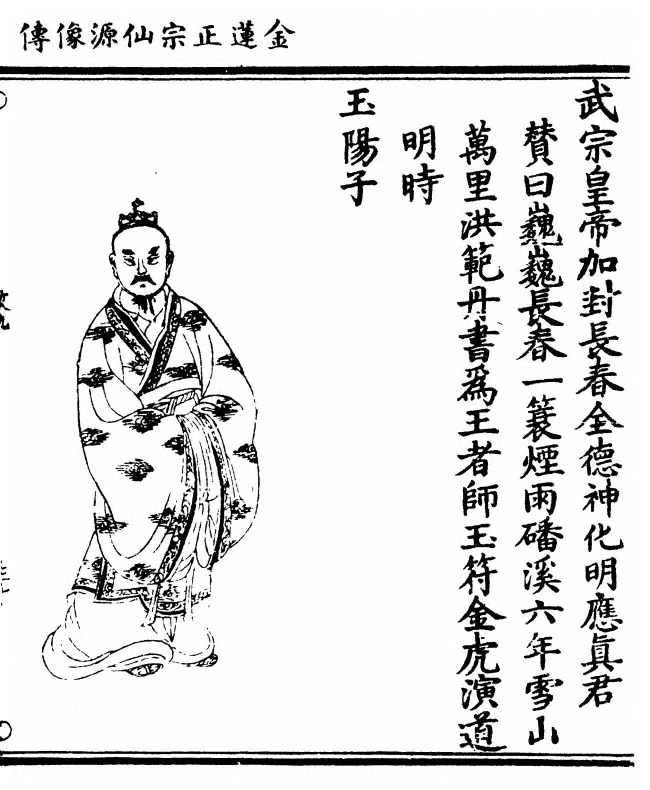 金蓮正宗仙源像傳
武宗皇帝加封長春全德神化明應眞君
賛曰巍巍長春一蓑煙雨磻溪六年雪山
萬里洪範丹書爲王者師玉符金虎演道
明時
玉陽子